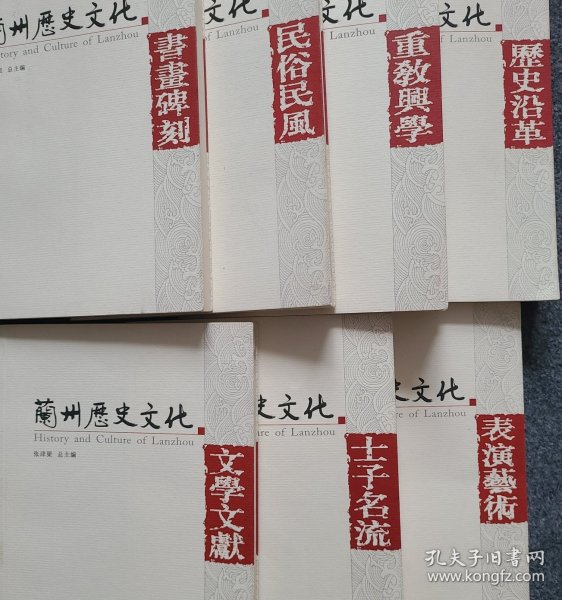 蘭州歷史文化
History and Culture of Lanzhou
总主编
書畫碑刻
文化
ture of Lanzhou
民俗民風
文化
of Lanzhou
重教興學
文化
of Lanzhou
歷史沿革
蘭州歷史文化
History and Culture of Lanzhou
张津梁 总主编
文學文獻
史文化
ure of Lanzhou
士子名流
文化
of Lanzhou
表演藝術
孔夫子旧书网
www.kongfz.com